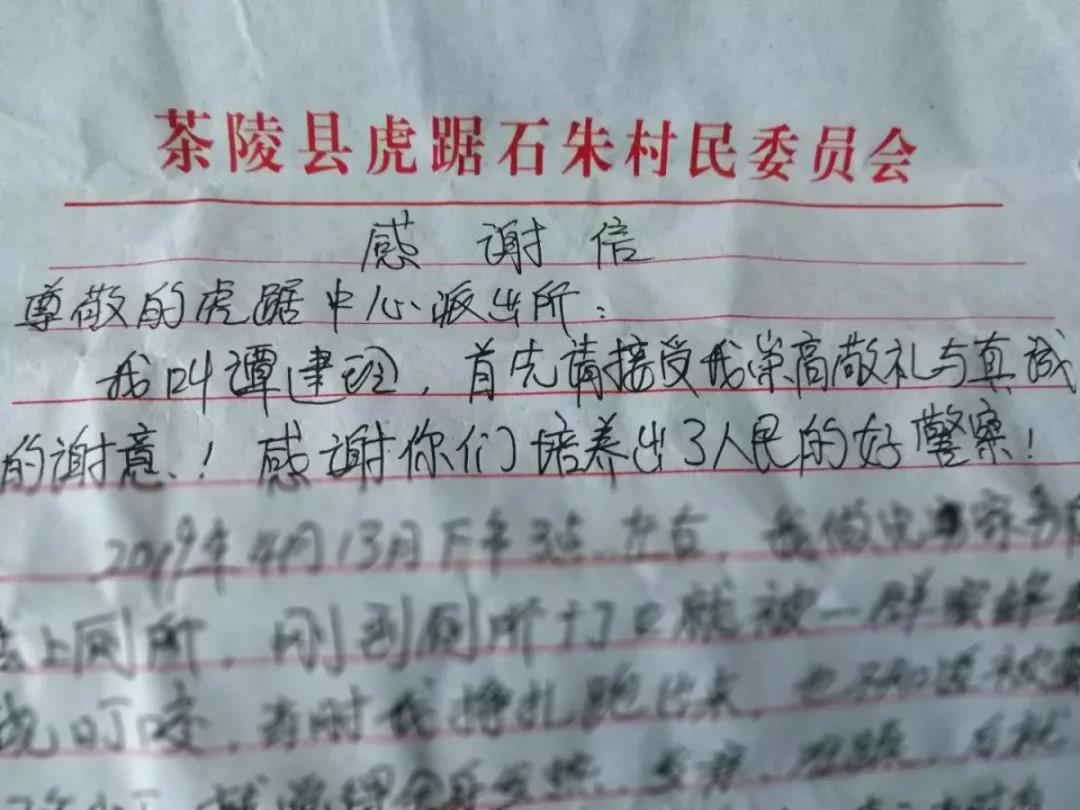 茶陵县虎踞石朱村民委员会
感谢信
尊敬的虎踞中心派出所：
我叫谭建班，首先请接受我崇高敬礼与真诚
的谢意！感谢你们培养出了人民的好警察！
2019年4月13日下午3点左右，我做完家务
去上厕所，刚到厕所门口就被一群蜜蜂
叮咬，当时我挣扎跑出来，也不知道被